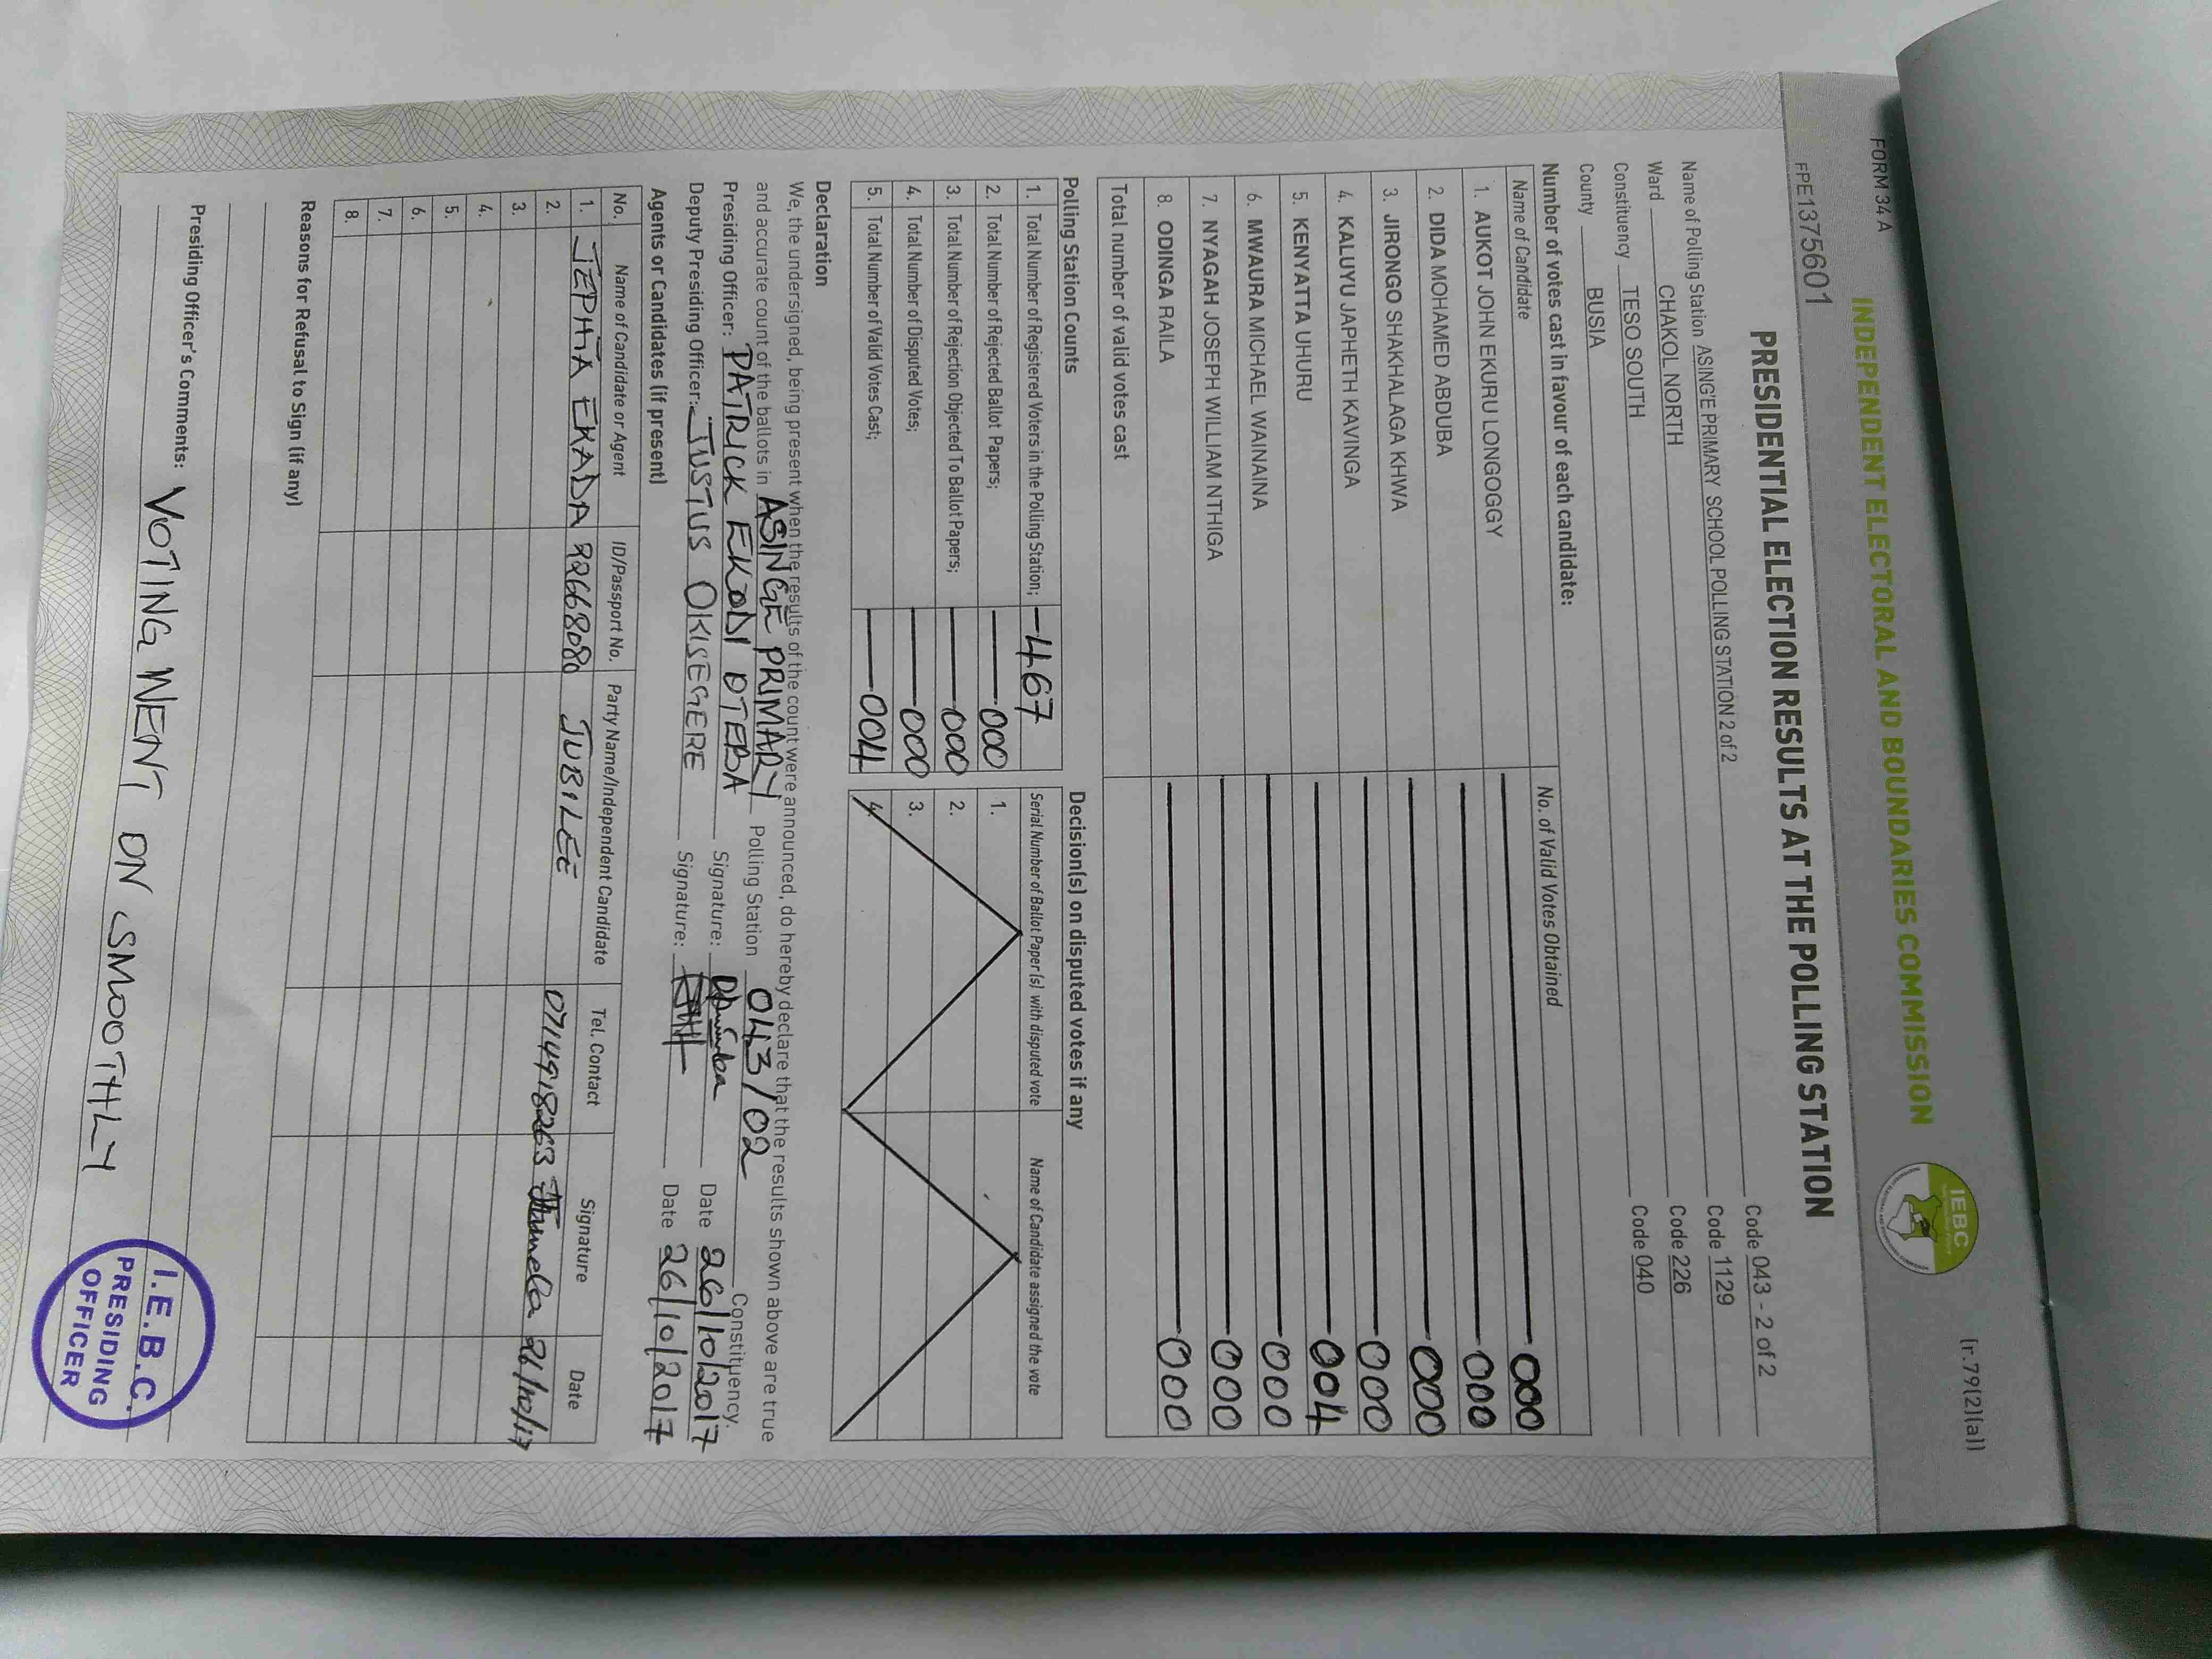 FORM 34 A
(r.79(2)(a))
INDEPENDENT ELECTORAL AND BOUNDARIES COMMISSION
IEBC
FPE1375601
PRESIDENTIAL ELECTION RESULTS AT THE POLLING STATION
Name of Polling Station ASING'E PRIMARY SCHOOL POLLING STATION 2 of 2 Code 043 - 2 of 2
Ward CHAKOL NORTH Code 1129
Constituency TESO SOUTH Code 226
County BUSIA Code 040
Number of votes cast in favour of each candidate:
Name of Candidate No. of Valid Votes Obtained
1. AUKOT JOHN EKURU LONGOGGY 000
2. DIDA MOHAMED ABDUBA 000
3. JIRONGO SHAKHALAGA KHWA 000
4. KALUYU JAPHETH KAVINGA 000
5. KENYATTA UHURU 004
6. MWAURA MICHAEL WAINAINA 000
7. NYAGAH JOSEPH WILLIAM NTHIGA 000
8. ODINGA RAILA 000
Total number of valid votes cast
Polling Station Counts Decision(s) on disputed votes if any
1. Total Number of Registered Voters in the Polling Station; 467 Serial Number of Ballot Paper(s) with disputed vote Name of Candidate assigned the vote
2. Total Number of Rejected Ballot Papers; 000 1.
3. Total Number of Rejection Objected To Ballot Papers; 000 2.
4. Total Number of Disputed Votes; 000 3.
5. Total Number of Valid Votes Cast; 004 4.
Declaration
We, the undersigned, being present when the results of the count were announced, do hereby declare that the results shown above are true
and accurate count of the ballots in ASINGE PRIMARY Polling Station 043/02 Constituency.
Presiding Officer: PATRICK EKODI OTEBA Signature: Date 26/10/2017
Deputy Presiding Officer: JUSTUS OKISEGERE Signature: Date 26/10/2017
Agents or Candidates (if present)
No. Name of Candidate or Agent ID/Passport No. Party Name/Independent Candidate Tel. Contact Signature Date
1. JEPHA EKADA 22668080 JUBILEE 0714918263 26/10/17
2.
3.
4.
5.
6.
7.
8.
Reasons for Refusal to Sign (if any)
Presiding Officer's Comments: VOTING WENT ON SMOOTHLY
I.E.B.C.
PRESIDING
OFFICER